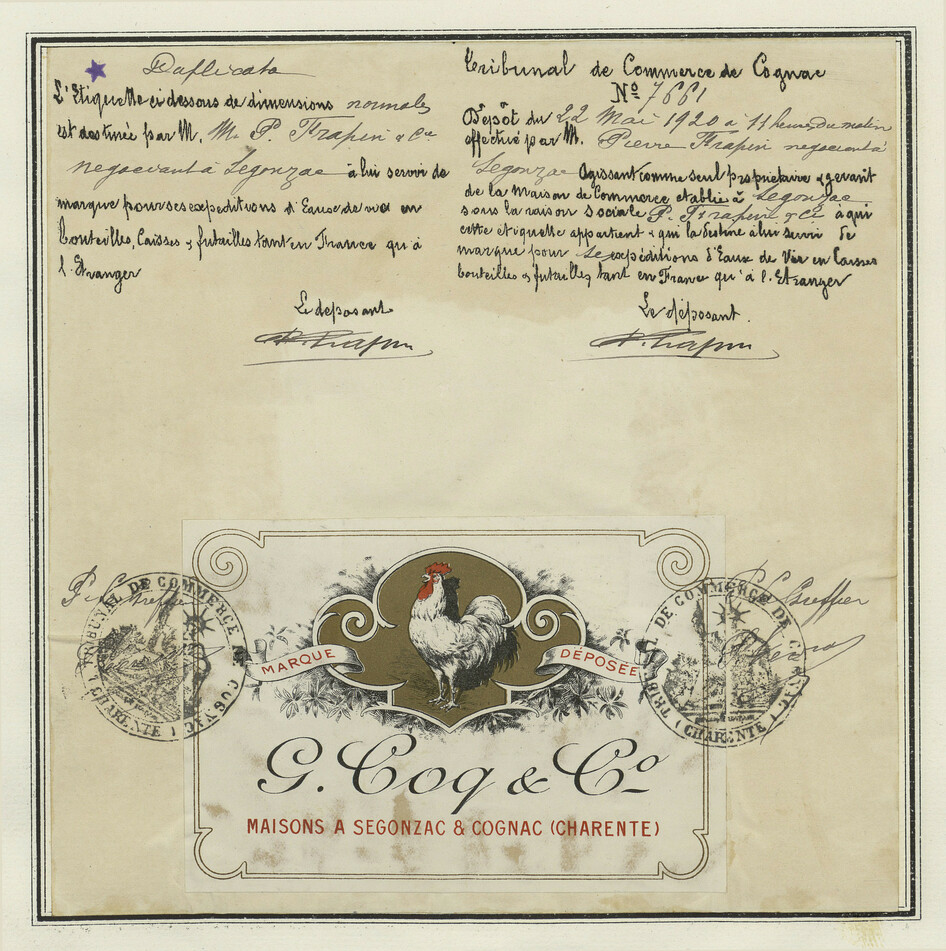 Duplicata
L'Etiquette ci dessous de dimensions normales
est destinée par M. M. P. Frapin & Cie
negociant à Segonzac à lui servir de
marque pour ses expeditions d'Eaux de vie en
Bouteilles, Caisses & futailles tant en France qu'à
l'Etranger
Le deposant
P. Frapin
Tribunal de Commerce de Cognac
No 7661
Dépôt du 22 Mai 1920 à 11 heures du matin
effectué par M. Pierre Frapin negociant à
Segonzac Agissant comme seul propriétaire & gerant
de la Maison de Commerce etablie à Segonzac
sous la raison sociale P. Frapin & Cie à qui
cette etiquette appartient & qui la destine à lui servir de
marque pour ses expéditions d'Eaux de Vie en Caisses
bouteilles & futailles tant en France qu'à l'Etranger
Le déposant.
P. Frapin
TRIBUNAL DE COMMERCE DE COGNAC
(CHARENTE)
Greffier
TRIBUNAL DE COMMERCE DE COGNAC
(CHARENTE)
MARQUE DÉPOSÉE
G. Coq & Co
MAISONS A SEGONZAC & COGNAC (CHARENTE)